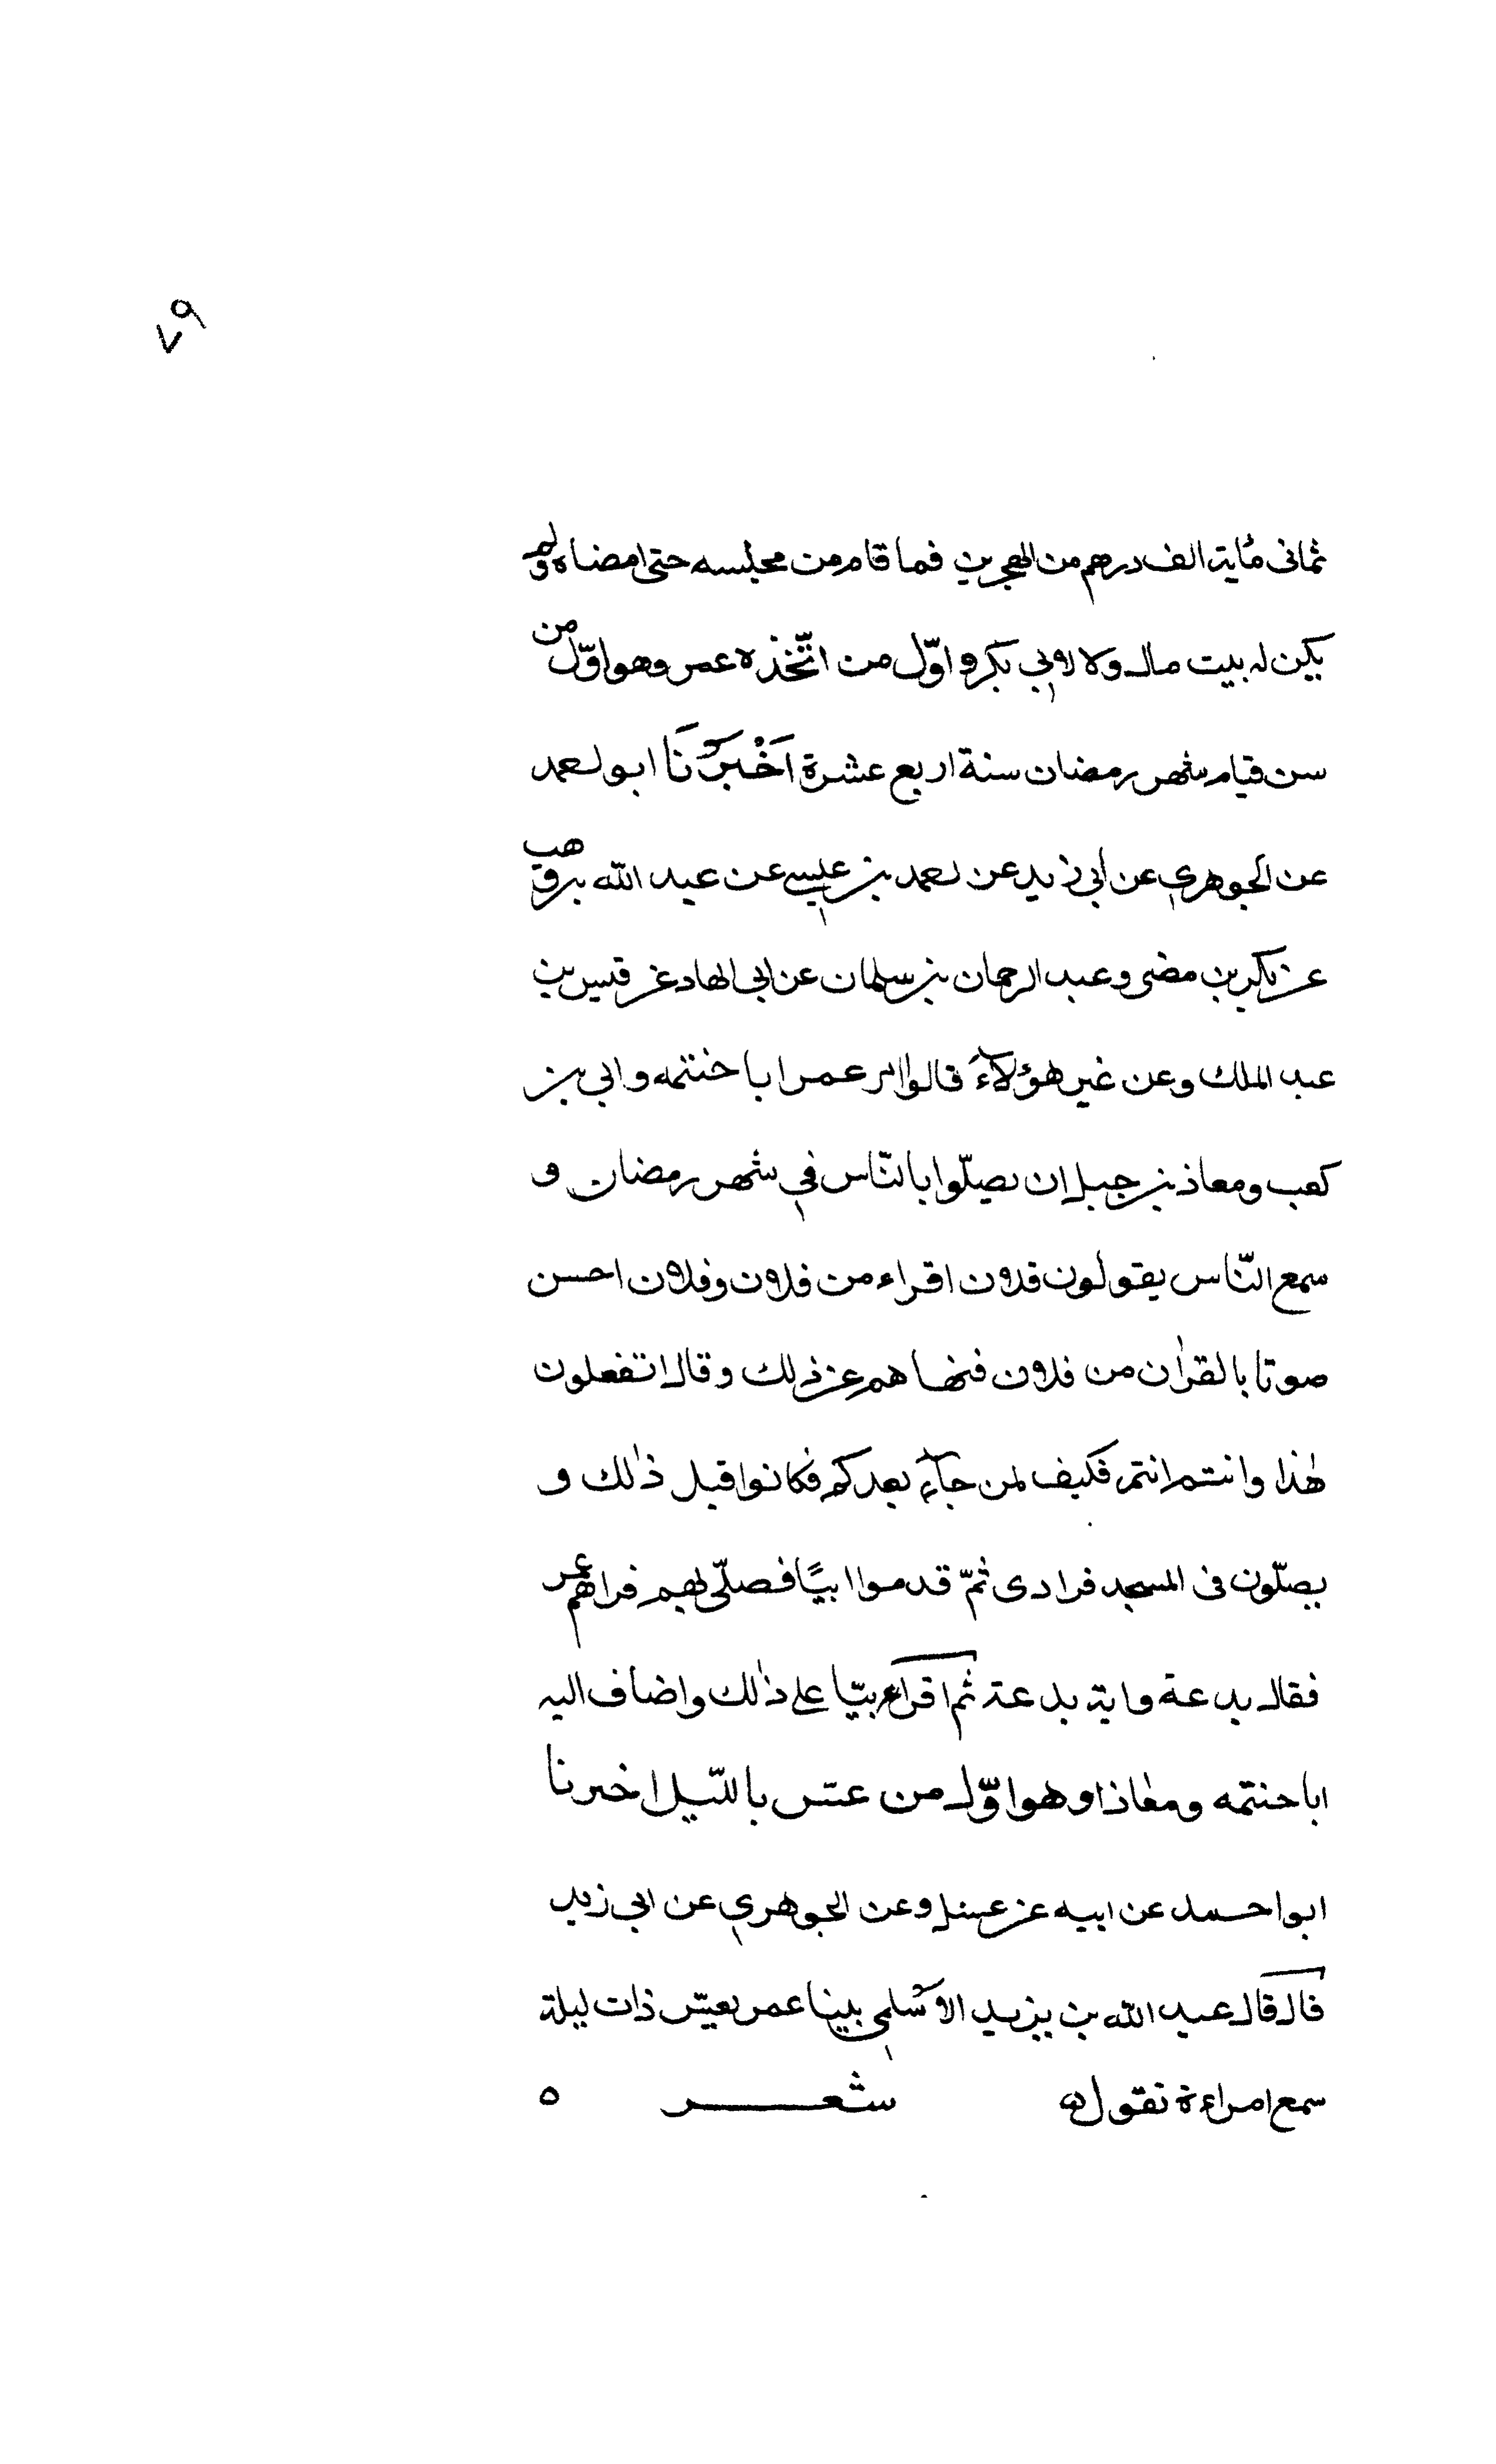 ٧٩
ثمانى مائة الف درهم من الهجرين فما قام من مجلسه حتى امضاه ولم
يكن له بيت مال ولا لابي بكر و اوّل من اتّخذه عمر وهو اوّل من
سن قيام شهر رمضان سنة اربع عشرة اَخْبَرَنَا ابو احمد
عن الجوهري عن ابي زيد عن احمد بن عيسى عن عبد الله بن وهب
عن بكر بن مضر وعبد الرحمان بن سلمان عن ابى الهاد عن قيس بن
عبد الملك وعن غير هؤلآءَ قالوا امر عمر ابا خنتمه وابي بن
كعب ومعاذ بن جبل ان يصلّوا بالنّاس في شهر رمضان و
سمع النّاس يقولون فلان اقراء من فلان وفلان احسن
صوتا بالقرٰان من فلان فنهاهم عن ذلك وقال اتفعلون
هٰذا وانتم انتم فكيف لمن جآء بعدكم فكانوا قبل ذٰلك و
يصلّون فى المسجد فرادى ثمّ قدموا ابيًّا فصلّى بهم فراهم عمر
فقال بدعة واية بدعة ثم اقراء ابيّا على ذٰلك واضاف اليه
ابا خنتمه ومعاذا وهو اوّل من عسّ بالليّل اخبرنا
ابو احمد عن ابيه عن عسل وعن الجوهري عن ابى زيد
قال قال عبد الله بن يزيد الاسلمى بينا عمر يعسّ ذات ليلة
سمع امراءة تقول شعر ٥